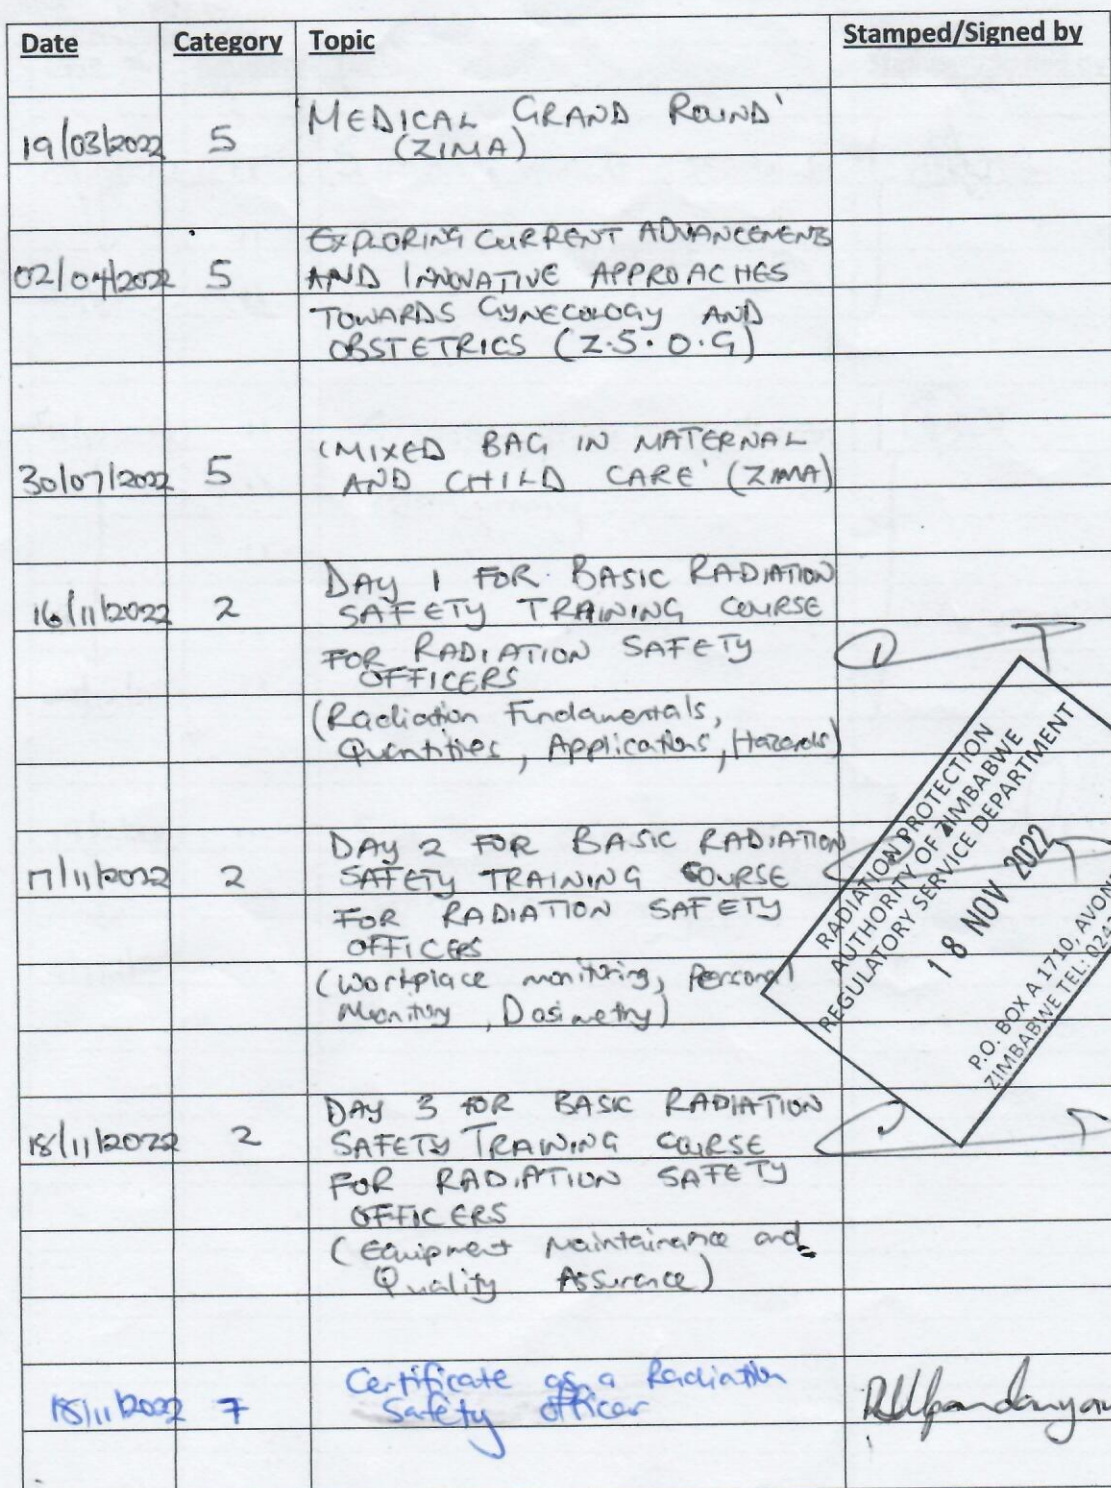 Date Category Topic Stamped/Signed by
'MEDICAL GRAND ROUND'
19/03/2022 5 (ZIMA)
EXPLORING CURRENT ADVANCEMENTS
02/04/2022 5 AND INNOVATIVE APPROACHES
TOWARDS GYNECOLOGY AND
OBSTETRICS (Z.S.O.G)
'MIXED BAG IN MATERNAL
30/07/2022 5 AND CHILD CARE' (ZIMA)
DAY 1 FOR BASIC RADIATION
16/11/2022 2 SAFETY TRAINING COURSE
FOR RADIATION SAFETY
OFFICERS
(Radiation Fundamentals,
Quantities, Applications, Hazards)
DAY 2 FOR BASIC RADIATION
17/11/2022 2 SAFETY TRAINING COURSE
FOR RADIATION SAFETY
OFFICERS
(Workplace monitoring, Personal
Monitoring, Dosimetry)
RADIATION PROTECTION
AUTHORITY OF ZIMBABWE
REGULATORY SERVICE DEPARTMENT
18 NOV 2022
P.O. BOX A 1710, AVON
ZIMBABWE TEL: 024
DAY 3 FOR BASIC RADIATION
18/11/2022 2 SAFETY TRAINING COURSE
FOR RADIATION SAFETY
OFFICERS
(Equipment Maintainance and
Quality Assurance)
Certificate as a Radiation
18/11/2022 7 Safety Officer